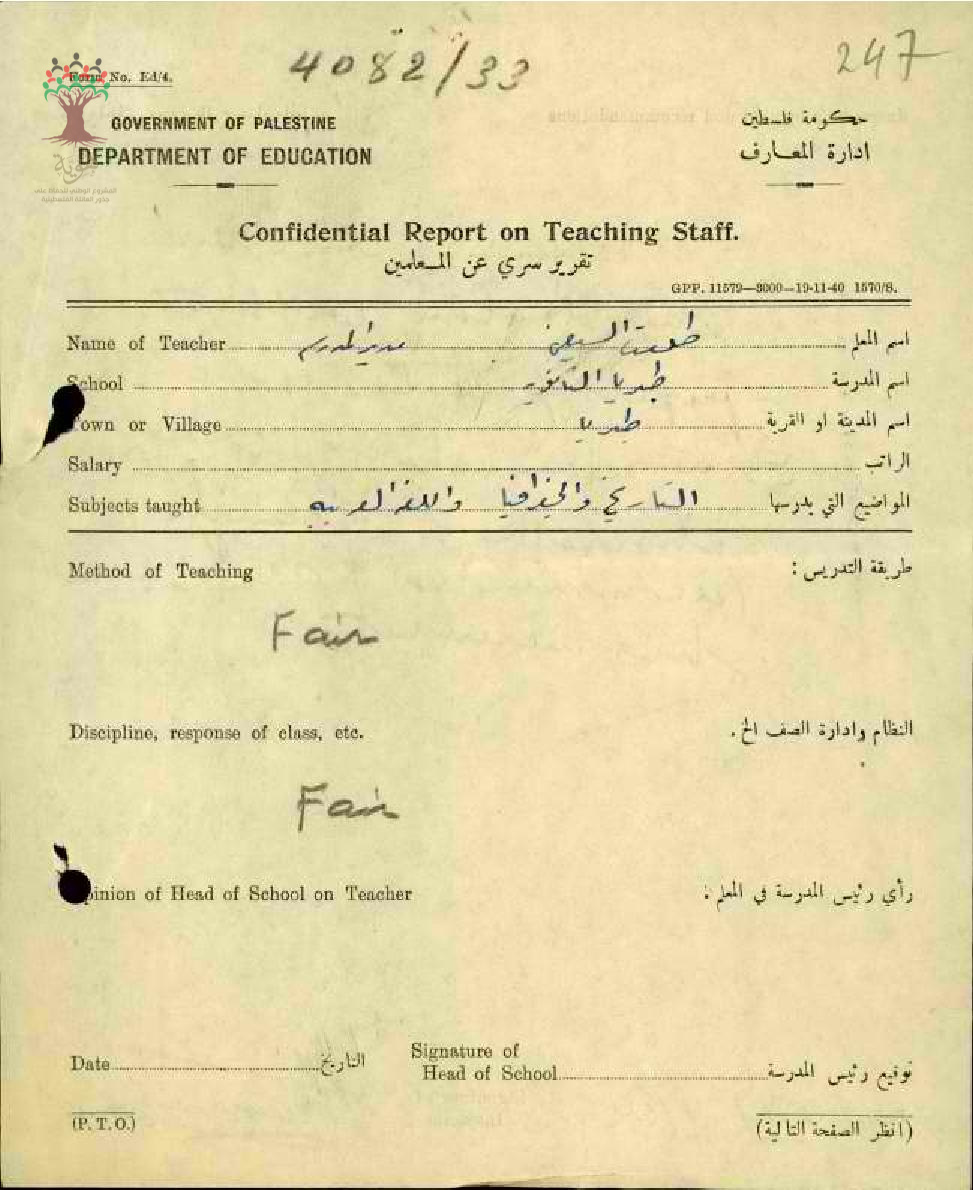 4082/33
247
Form No. Ed/4.
GOVERNMENT OF PALESTINE
حكومة فلسطين
DEPARTMENT OF EDUCATION
ادارة المعارف
هوية
المشروع الوطني للحفاظ على
جذور العائلة الفلسطينية
Confidential Report on Teaching Staff.
تقرير سري عن المعلمين
GPP. 11579—3000—19-11-40 1570/S.
Name of Teacher طلعت السيفي مدير المدرسة اسم المعلم
School طبريا الثانوية اسم المدرسة
Town or Village طبريا اسم المدينة او القرية
Salary الراتب
Subjects taught التاريخ والجغرافيا واللغة العربيه المواضيع التي يدرسها
Method of Teaching طريقة التدريس :
Fair
Discipline, response of class, etc. النظام وادارة الصف الخ.
Fair
Opinion of Head of School on Teacher رأي رئيس المدرسة في المعلم :
Date التاريخ Signature of
Head of School توقيع رئيس المدرسة
(P. T. O.) (انظر الصفحة التالية)